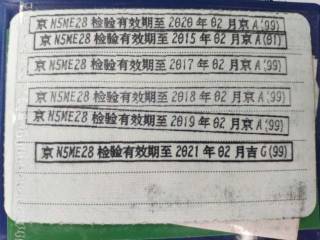 京N5ME28检验有效期至2020年02月京A(99)
京N5ME28检验有效期至2015年02月京A(01)
京N5ME28检验有效期至2017年02月京A(99)
京N5ME28检验有效期至2018年02月京A(99)
京N5ME28检验有效期至2019年02月京A(99)
京N5ME28检验有效期至2021年02月吉G(99)